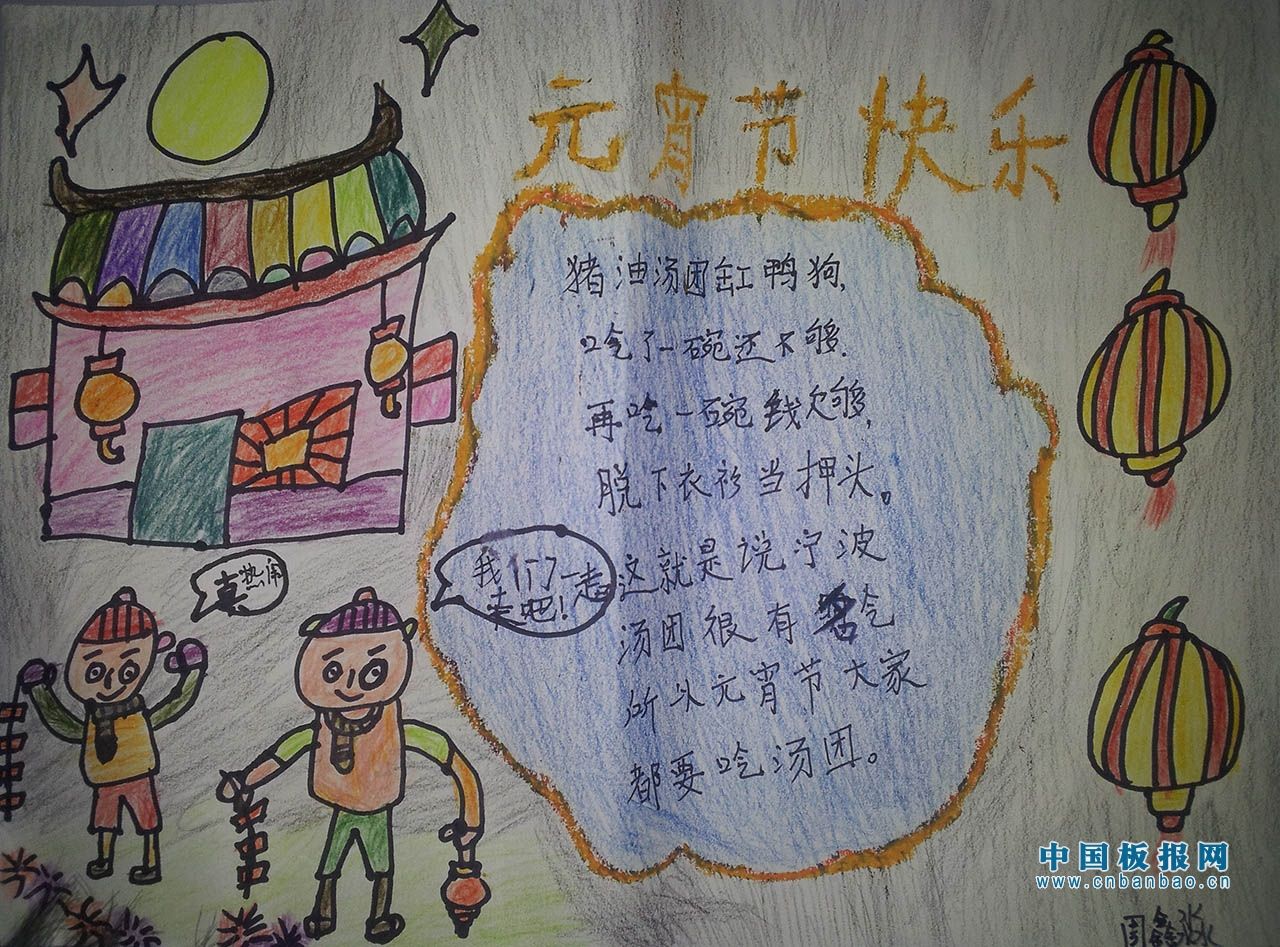 元宵节快乐
猪油汤团缸鸭狗,
吃了一碗还不够.
再吃一碗钱欠够,
脱下衣衫当押头。
这就是说宁波
汤团很有名气
所以元宵节大家
都要吃汤团。
真热闹
我们一起
去吧!
中国板报网
www.cnbanbao.cn